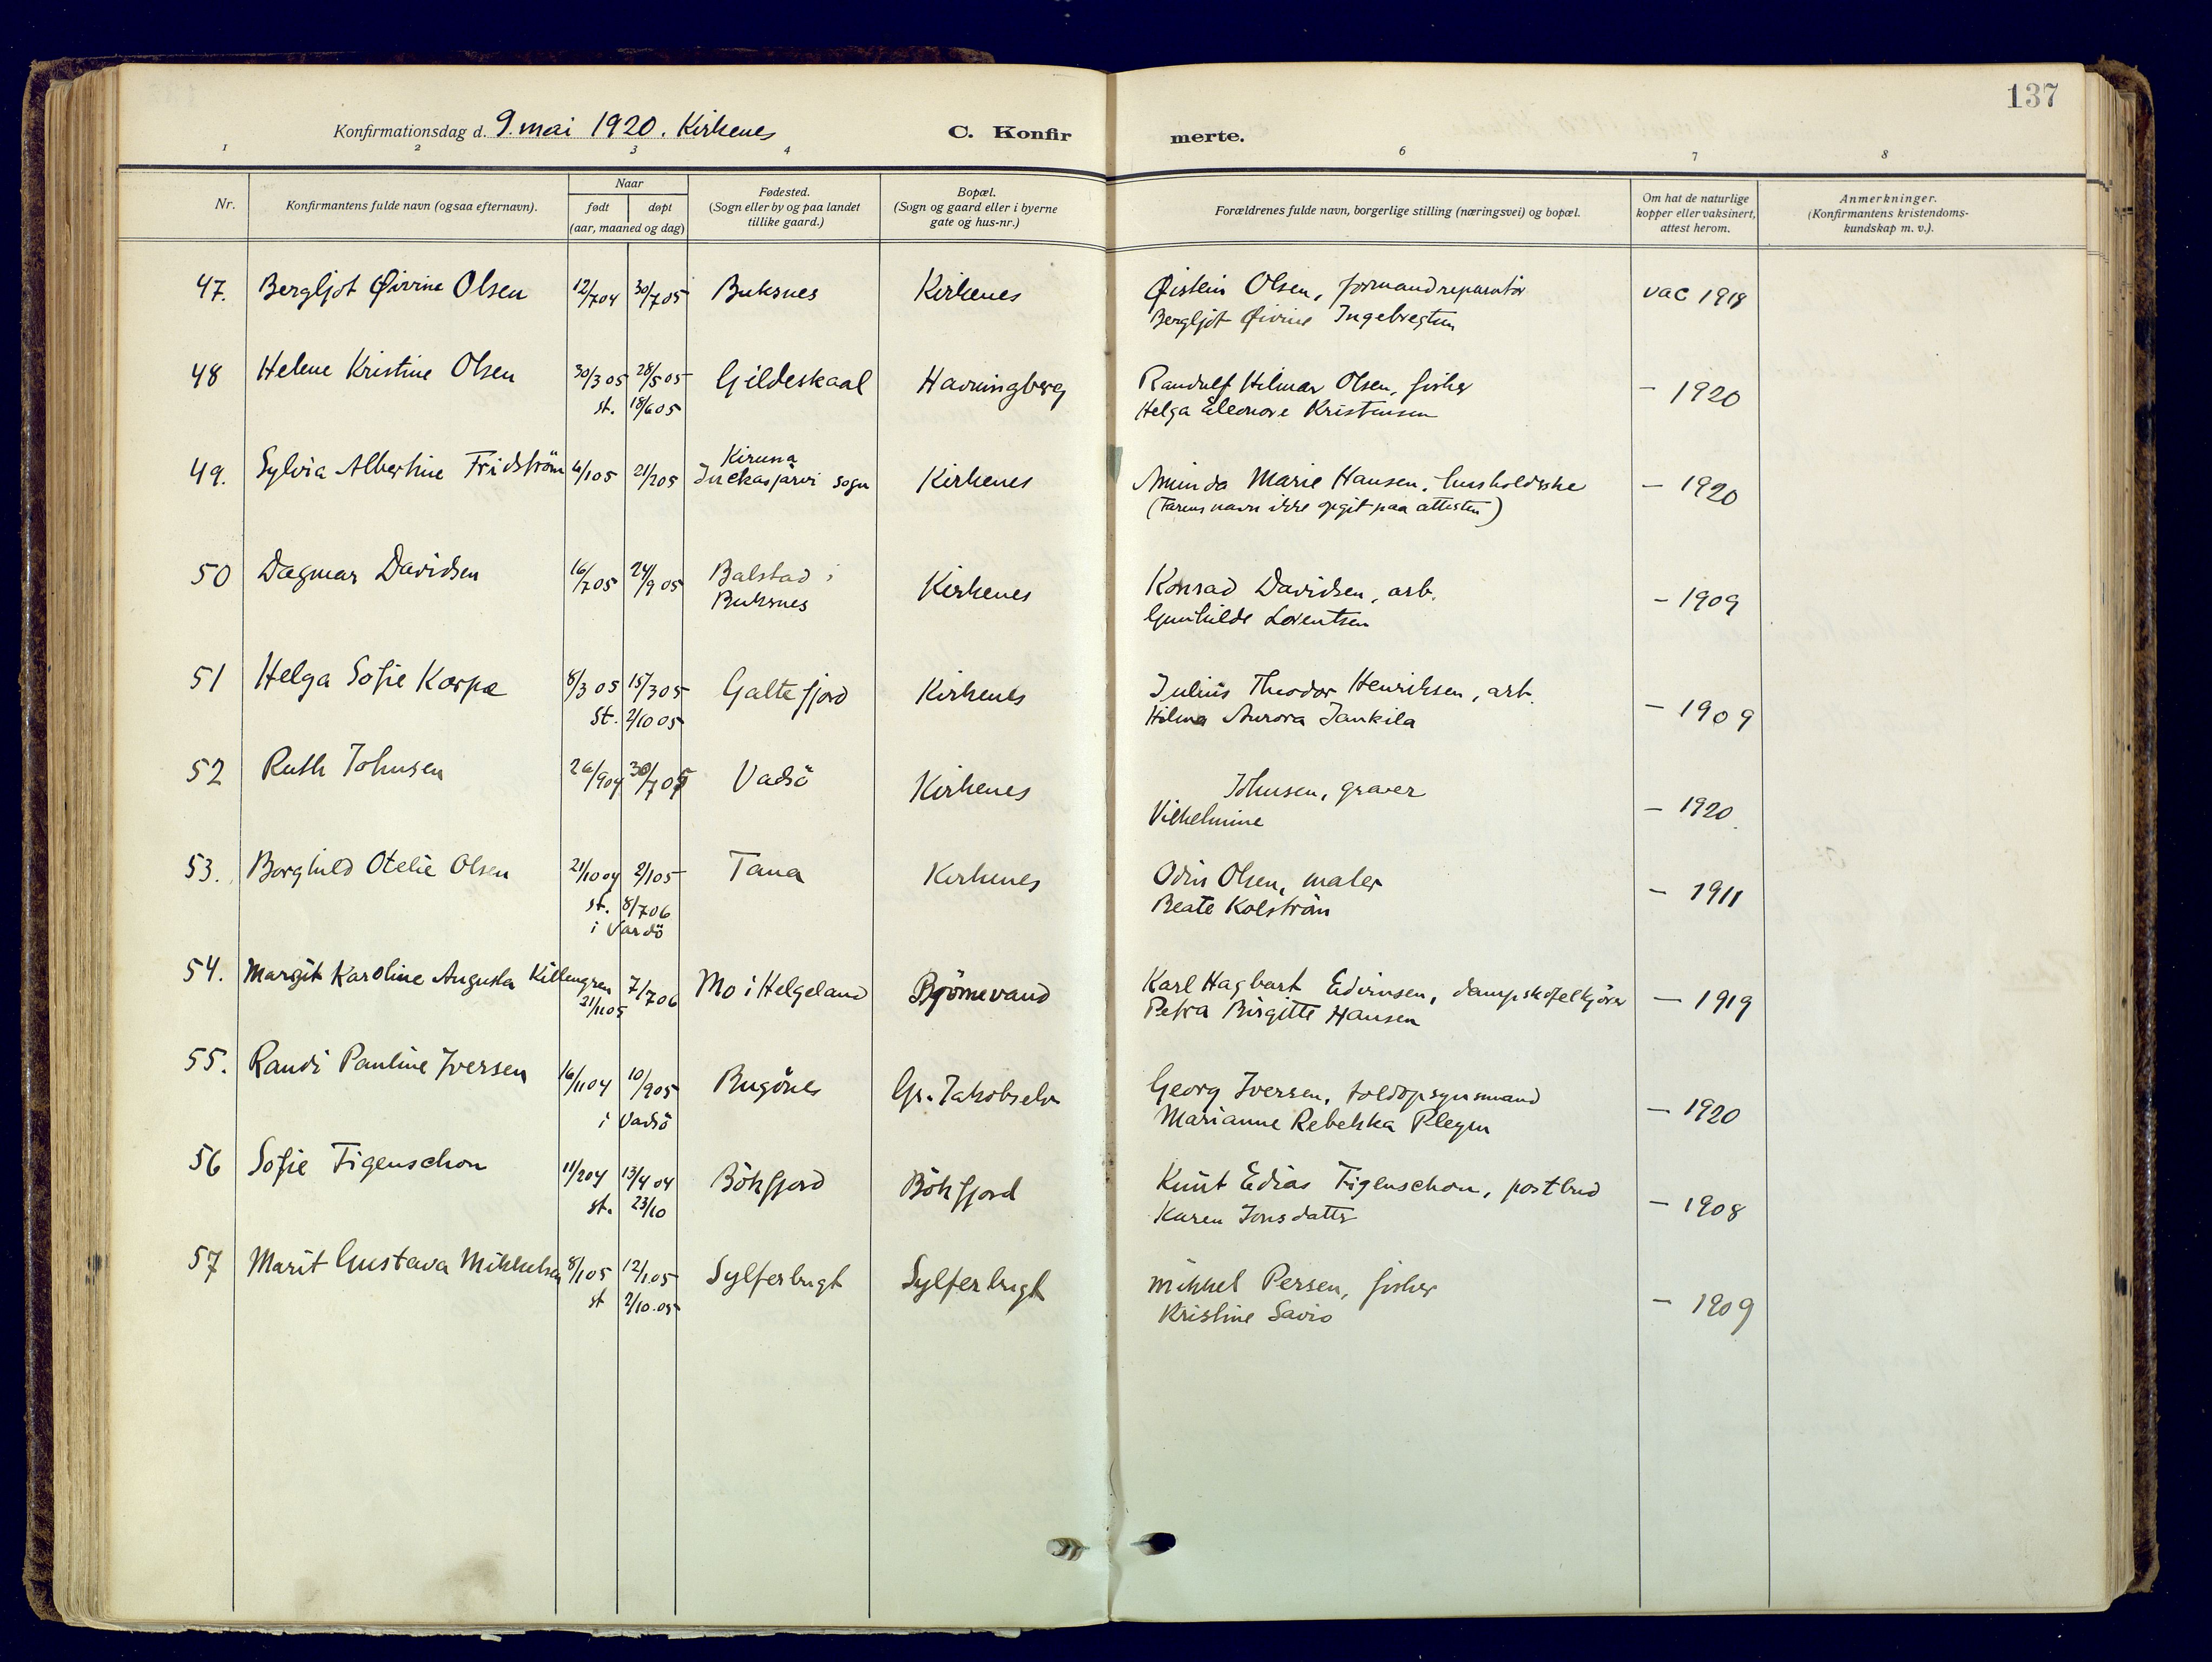 137
Konfirmationsdag d. 9. mai 1920. Kirkenes
C. Konfir merte.
1 2 3 4 6 7 8
Nr.
Konfirmantens fulde navn (ogsaa efternavn).
Naar
født døpt
(aar, maaned og dag)
Fødested.
(Sogn eller by og paa landet
tillike gaard.)
Bopæl.
(Sogn og gaard eller i byerne
gate og hus-nr.)
Forældrenes fulde navn, borgerlige stilling (næringsvei) og bopæl.
Om hat de naturlige
kopper eller vaksinert,
attest herom.
Anmerkninger.
(Konfirmantens kristendoms-
kundskap m. v.).
47. Bergljot Øivine Olsen 12/7 04 30/7 05 Buksnes Kirkenes Øistein Olsen, formandreparatør vac 1919
Bergljot Øivine Ingebregtsen
48 Helene Kristine Olsen 30/3 05 28/5 05 Gildeskaal Havningberg Randulf Hilmar Olsen, fisker — 1920
st. 18/6 05 Helga Eleonore Kristensen
49. Sylvia Albertine Fridström 4/1 05 21/2 05 Kiruna
Juckasjärvi sogn Kirkenes Aminda Marie Hansen, husholdske — 1920
(Farens navn ikke opgit paa attesten)
50 Dagmar Davidsen 16/7 05 24/9 05 Balstad i
Buksnes Kirkenes Konrad Davidsen, arb. — 1909
Gunhilde Lorentsen
51 Helga Sofie Karpa 8/3 05 15/3 05 Galtefjord Kirkenes Julius Theodor Henriksen, arb. — 1909
St. 2/10 05 Hilma Aurora Jankila
52 Ruth Johnsen 26/9 04 30/7 05 Vadsö Kirkenes Johnsen, graver — 1920
Vilhelmine
53. Borghild Otelie Olsen 21/10 04 2/1 05 Tana Kirkenes Odin Olsen, maler — 1911
st. 8/7 06 Beate Kolström
i Vardö
54. Margit Karoline Augusta Killengren 21/11 05 7/7 06 Mo i Helgeland Björnevand Karl Hagbart Edvinsen, dampskofelkjörer — 1919
Petra Birgitte Hansen
55. Randi Pauline Iversen 16/11 04 10/9 05 Bugönes Gr. Jakobselv Georg Iversen, toldopsynsmand — 1920
i Vadsö Marianne Rebekka Plegen
56 Sofie Figenschou 11/2 04 13/4 04 Bökfjord Bökfjord Knut Edias Figenschou, postbud — 1908
st. 23/10 Karen Jonsdatter
57 Marit Gustava Mikkelsen 8/1 05 12/1 05 Sylferbugt Sylferbugt Mikkel Persen, fisker — 1909
st 2/10.05 Kristine Savio